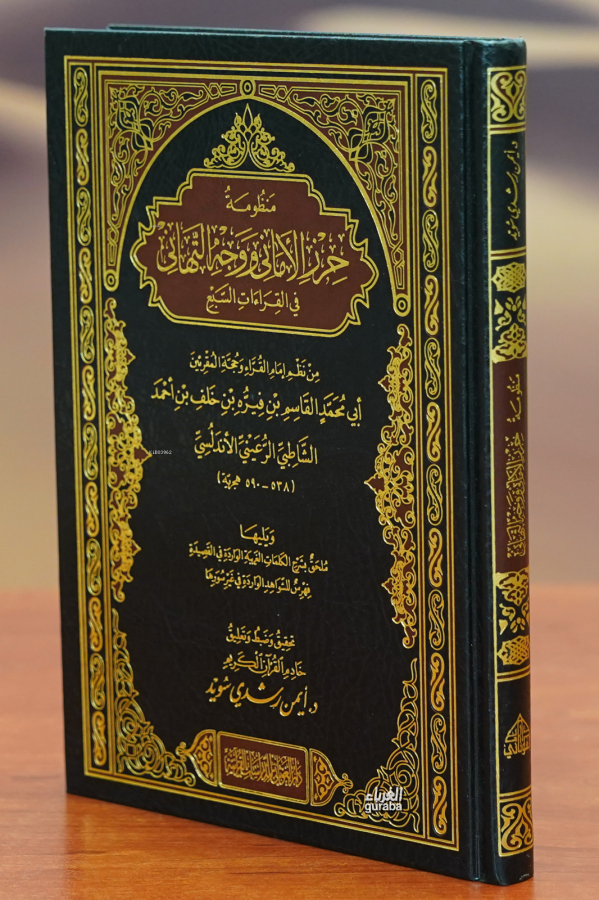 منظومة
حِرْزِ الأَمَانِي وَوَجْهِ التَّهَانِي
في القِرَاءَاتِ السَّبْعِ
مِنْ نَظْمِ إِمَامِ القُرَّاءِ وَحُجَّةِ المُقْرِئِينَ
أَبِي مُحَمَّدٍ القَاسِمِ بْنِ فِيرُّهِ بْنِ خَلَفِ بْنِ أَحْمَدَ
الشَّاطِبِيِّ الرُّعَيْنِيِّ الأَنْدَلُسِيِّ
(٥٣٨ - ٥٩٠ هجرية)
وَيَلِيهَا
مُلْحَقٌ بِشَرْحِ الكَلِمَاتِ الغَرِيبَةِ الوَارِدَةِ فِي القَصِيدَةِ
فِهْرِسٌ لِلشَّوَاهِدِ الوَارِدَةِ فِي غَيْرِ سُوَرِهَا
تحقيق وضبط وتعليق
خَادِمِ القُرْآنِ الكَرِيمِ
د. أيمن رشدي سويد
د. أيمن رشدي سويد
منظومة
حرز الأماني ووجه التهاني
KLB03962
الغرباء
guraba